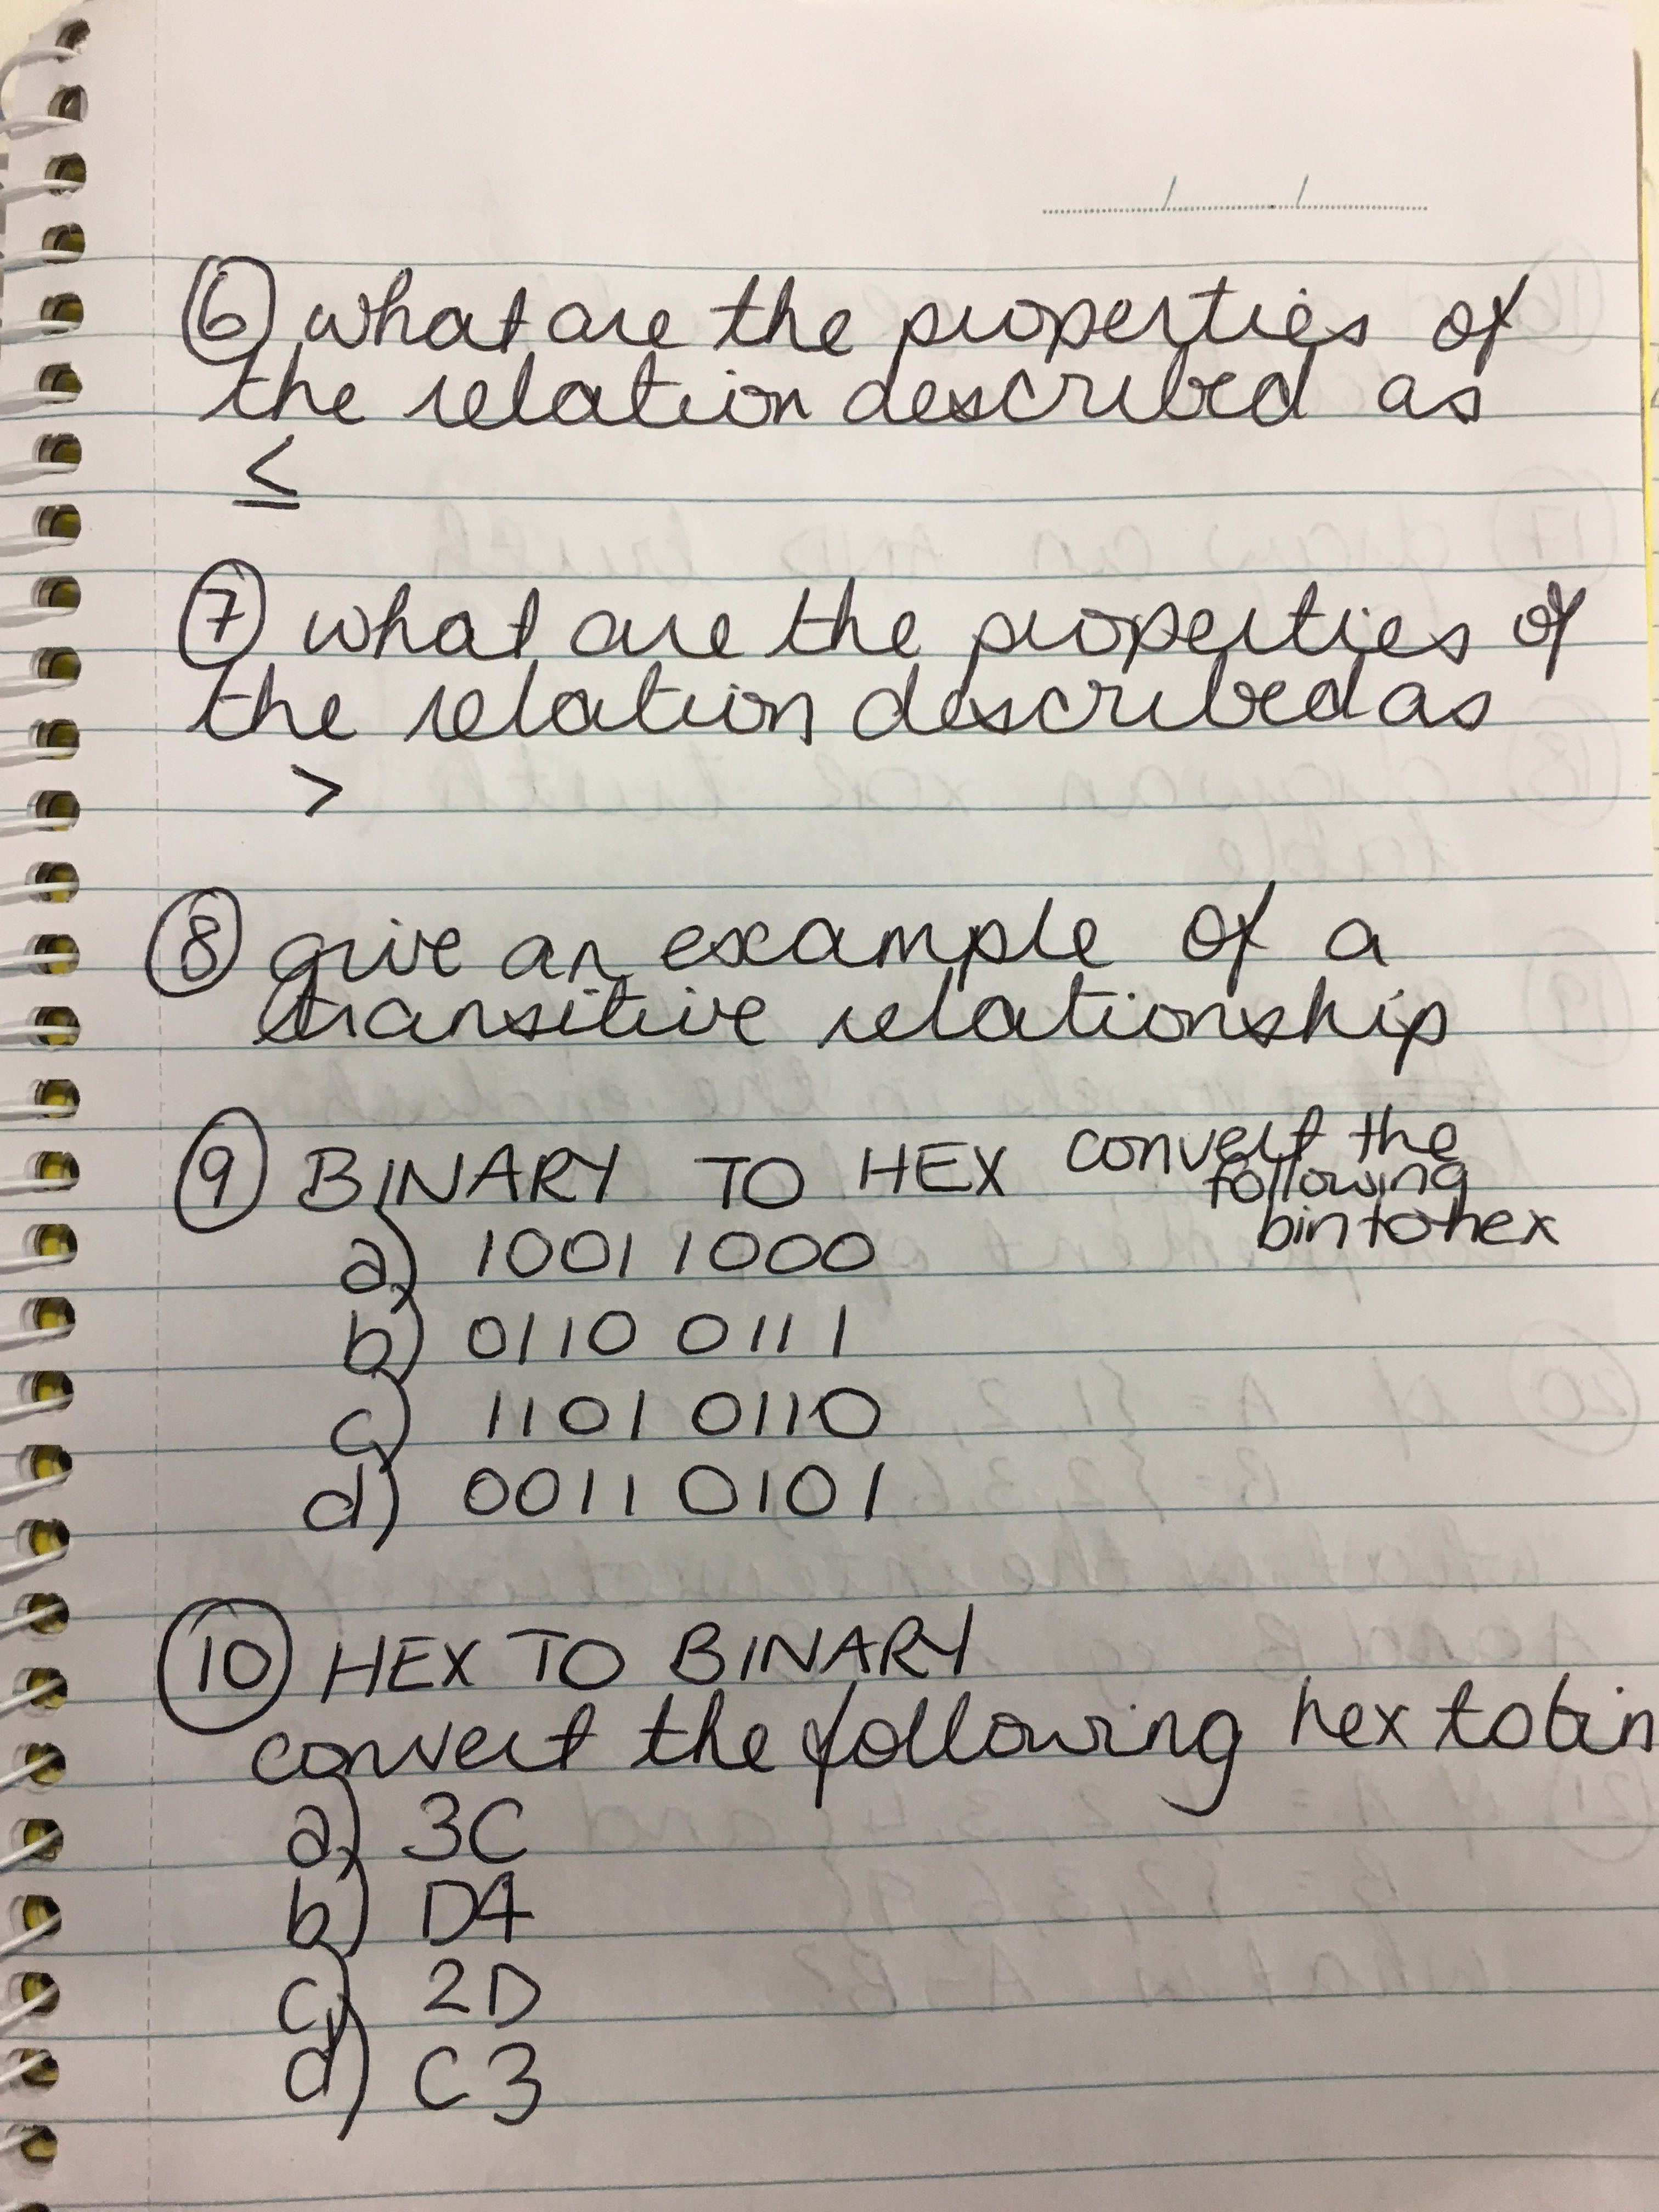 6 what are the properties of
the relation described as
≤
7 what are the properties of
the relation described as
>
8 give an example of a
transitive relationship
9 BINARY TO HEX convert the
following
bin to hex
a) 1001 1000
b) 0110 0111
c) 1101 0110
d) 0011 0101
10 HEX TO BINARY
convert the following hex to bin
a) 3C
b) D4
c) 2D
d) C3